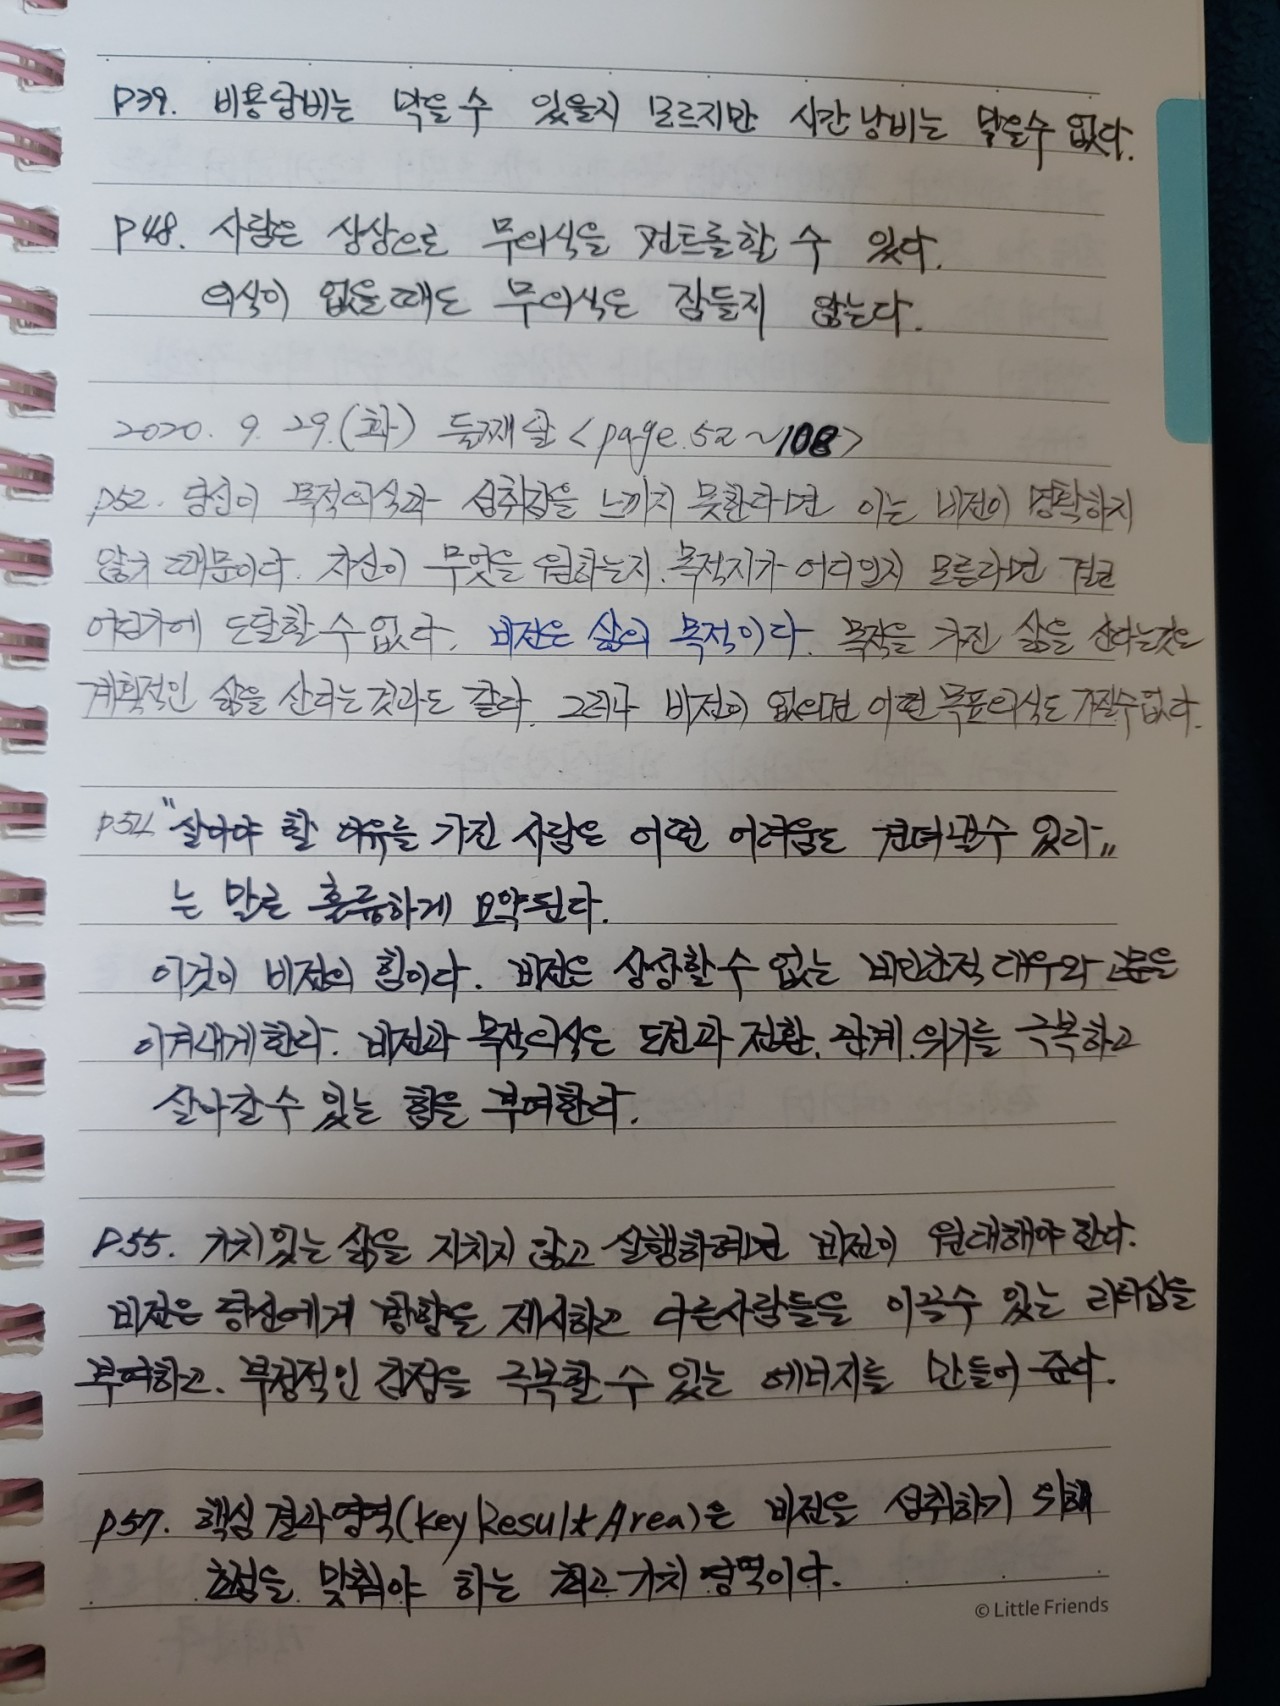 p39. 비용낭비는 막을수 있을지 모르지만 시간낭비는 막을수 없다.
p48. 사람은 상상으로 무의식을 컨트롤할 수 있다.
의식이 없을때도 무의식은 잠들지 않는다.
2020. 9. 29.(화) 둘째날 <page.52~108>
p52. 당신이 목적의식과 성취감을 느끼지 못한다면 이는 비전이 명확하지
않기 때문이다. 자신이 무엇을 원하는지. 목적지가 어디인지 모른다면 결코
어딘가에 도달할 수 없다. 비전은 삶의 목적이다. 목적을 가진 삶을 산다는것은
계획적인 삶을 산다는 것과도 같다. 그러나 비전이 없으면 어떤 목표의식도 가질수없다.
p54 "살아야 할 이유를 가진 사람은 어떤 어려움도 견뎌낼수 있다"
는 말로 훌륭하게 요약된다.
이것이 비전의 힘이다. 비전은 상상할수 없는 비인간적 대우와 고문을
이겨내게한다. 비전과 목적의식은 도전과 전환. 관계.위기를 극복하고
살아갈수 있는 힘을 부여한다.
p55. 가치있는 삶을 지치지 않고 실행하려면 비전이 원대해야 한다.
비전은 당신에게 방향을 제시하고 다른사람들을 이끌수 있는 리더십을
부여하고. 부정적인 감정을 극복할 수 있는 에너지를 만들어 준다.
p57. 핵심결과영역(Key Result Area)은 비전을 성취하기 위해
초점을 맞춰야 하는 최고가치 영역이다.
© Little Friends